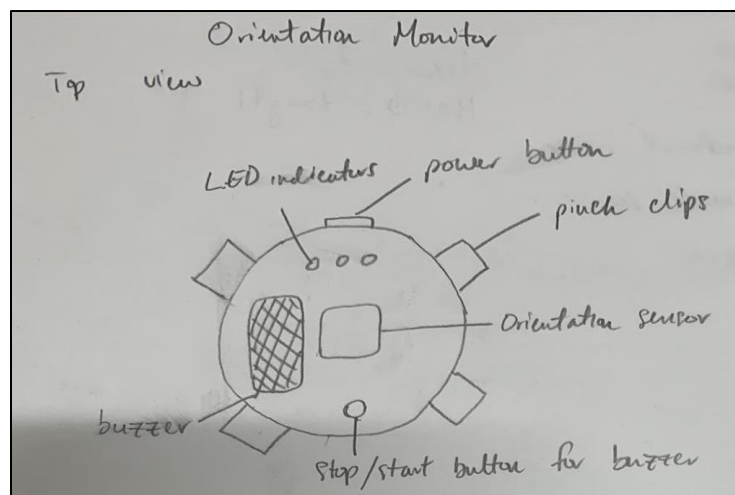 Orientation Monitor
Top view
LED indicators
power button
pinch clips
Orientation sensor
buzzer
stop/start button for buzzer